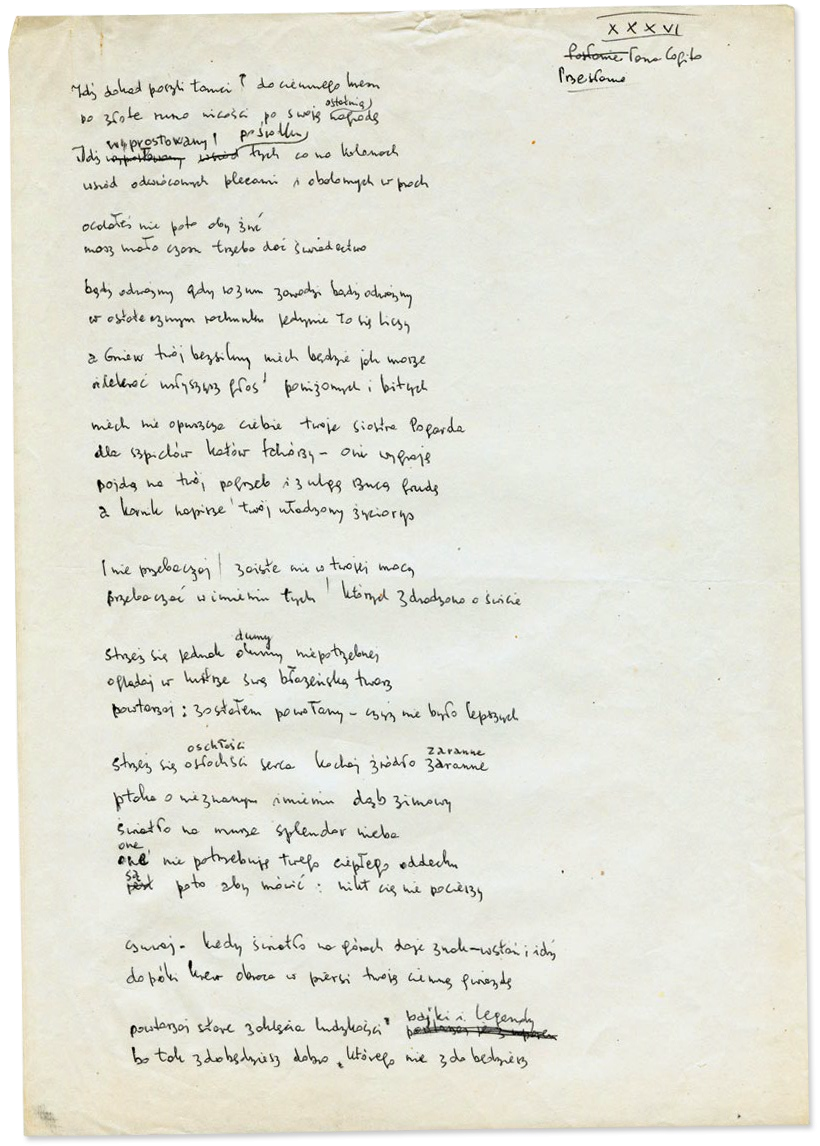 XXXVI
Posłanie Pana Cogito
Przesłanie
Idź dokąd poszli tamci do ciemnego kresu
po złote runo nicości po swoją ostatnią nagrodę
Idź wyprostowany pośród wśród tych co na kolanach
wśród odwróconych plecami i obalonych w proch
ocalałeś nie poto aby żyć
masz mało czasu trzeba dać świadectwo
bądź odważny gdy rozum zawodzi bądź odważny
w ostatecznym rachunku jedynie to się liczy
a Gniew twój bezsilny niech będzie jak morze
ilekroć usłyszysz głos poniżonych i bitych
niech nie opuszcza ciebie twoja siostra Pogarda
dla szpiclów katów tchórzy – oni wygrają
pójdą na twój pogrzeb i z ulgą rzucą grudę
a kornik napisze twój uładzony życiorys
I nie przebaczaj zaiste nie w twojej mocy
przebaczać w imieniu tych których zdradzono o świcie
strzeż się jednak dumy niepotrzebnej
oglądaj w lustrze swą błazeńską twarz
powtarzaj : zostałem powołany – czyż nie było lepszych
strzeż się oschłości serca kochaj źródło zaranne zaranne
ptaka o nieznanym imieniu dąb zimowy
światło na murze splendor nieba
one one nie potrzebują twego ciepłego oddechu
są jest poto aby mówić : nikt cię nie pocieszy
czuwaj – kiedy światło na górach daje znak – wstań i idź
dopóki krew obraca w piersi twoją ciemną gwiazdę
powtarzaj stare zaklęcia ludzkości bajki i legendy
bo tak zdobędziesz dobro którego nie zdobędziesz